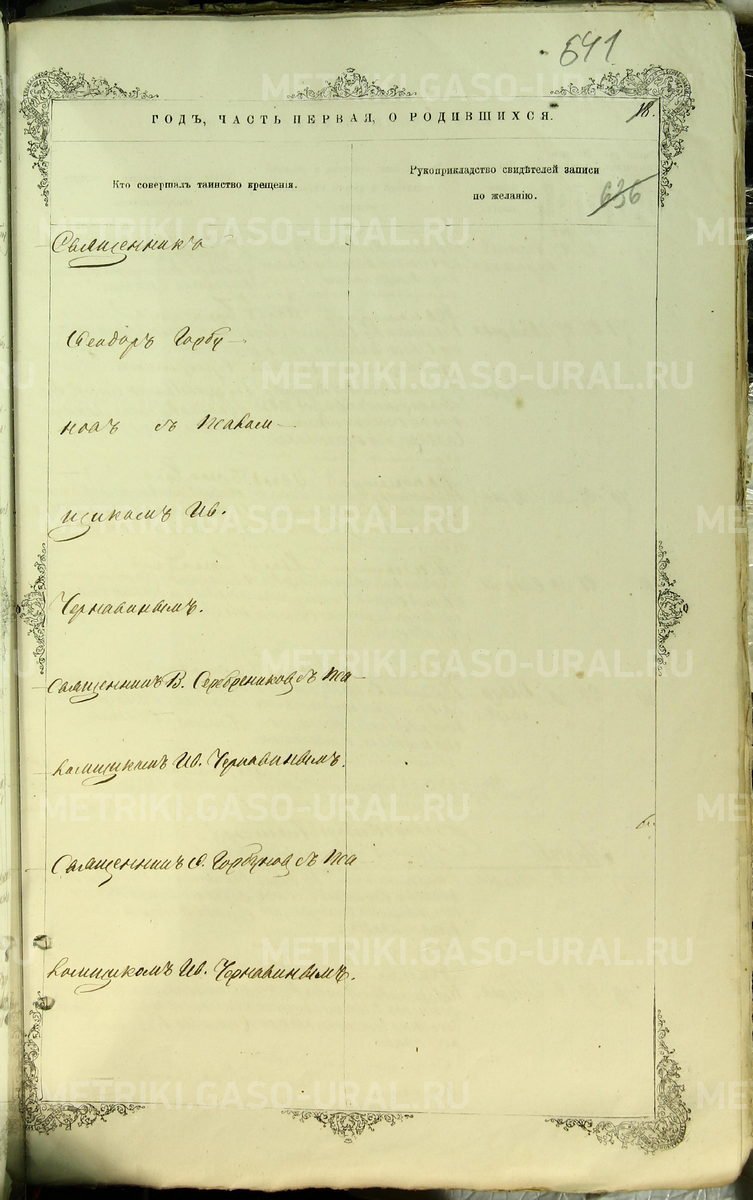 641
18.
ГОДЪ, ЧАСТЬ ПЕРВАЯ, О РОДИВШИХСЯ.
Кто совершалъ таинство крещенія.
Рукоприкладство свидѣтелей записи
по желанію.
636
Священникъ
Ѳеодоръ Горбу-
новъ съ псалом-
щикомъ Ив.
Чернавинымъ.
Священникъ В. Серебрениковъ съ пса-
ломщикомъ Ив. Чернавинымъ.
Священникъ Ѳ. Горбуновъ съ пса
ломщикомъ Ив. Чернавинымъ.
METRIKI.GASO-URAL.RU